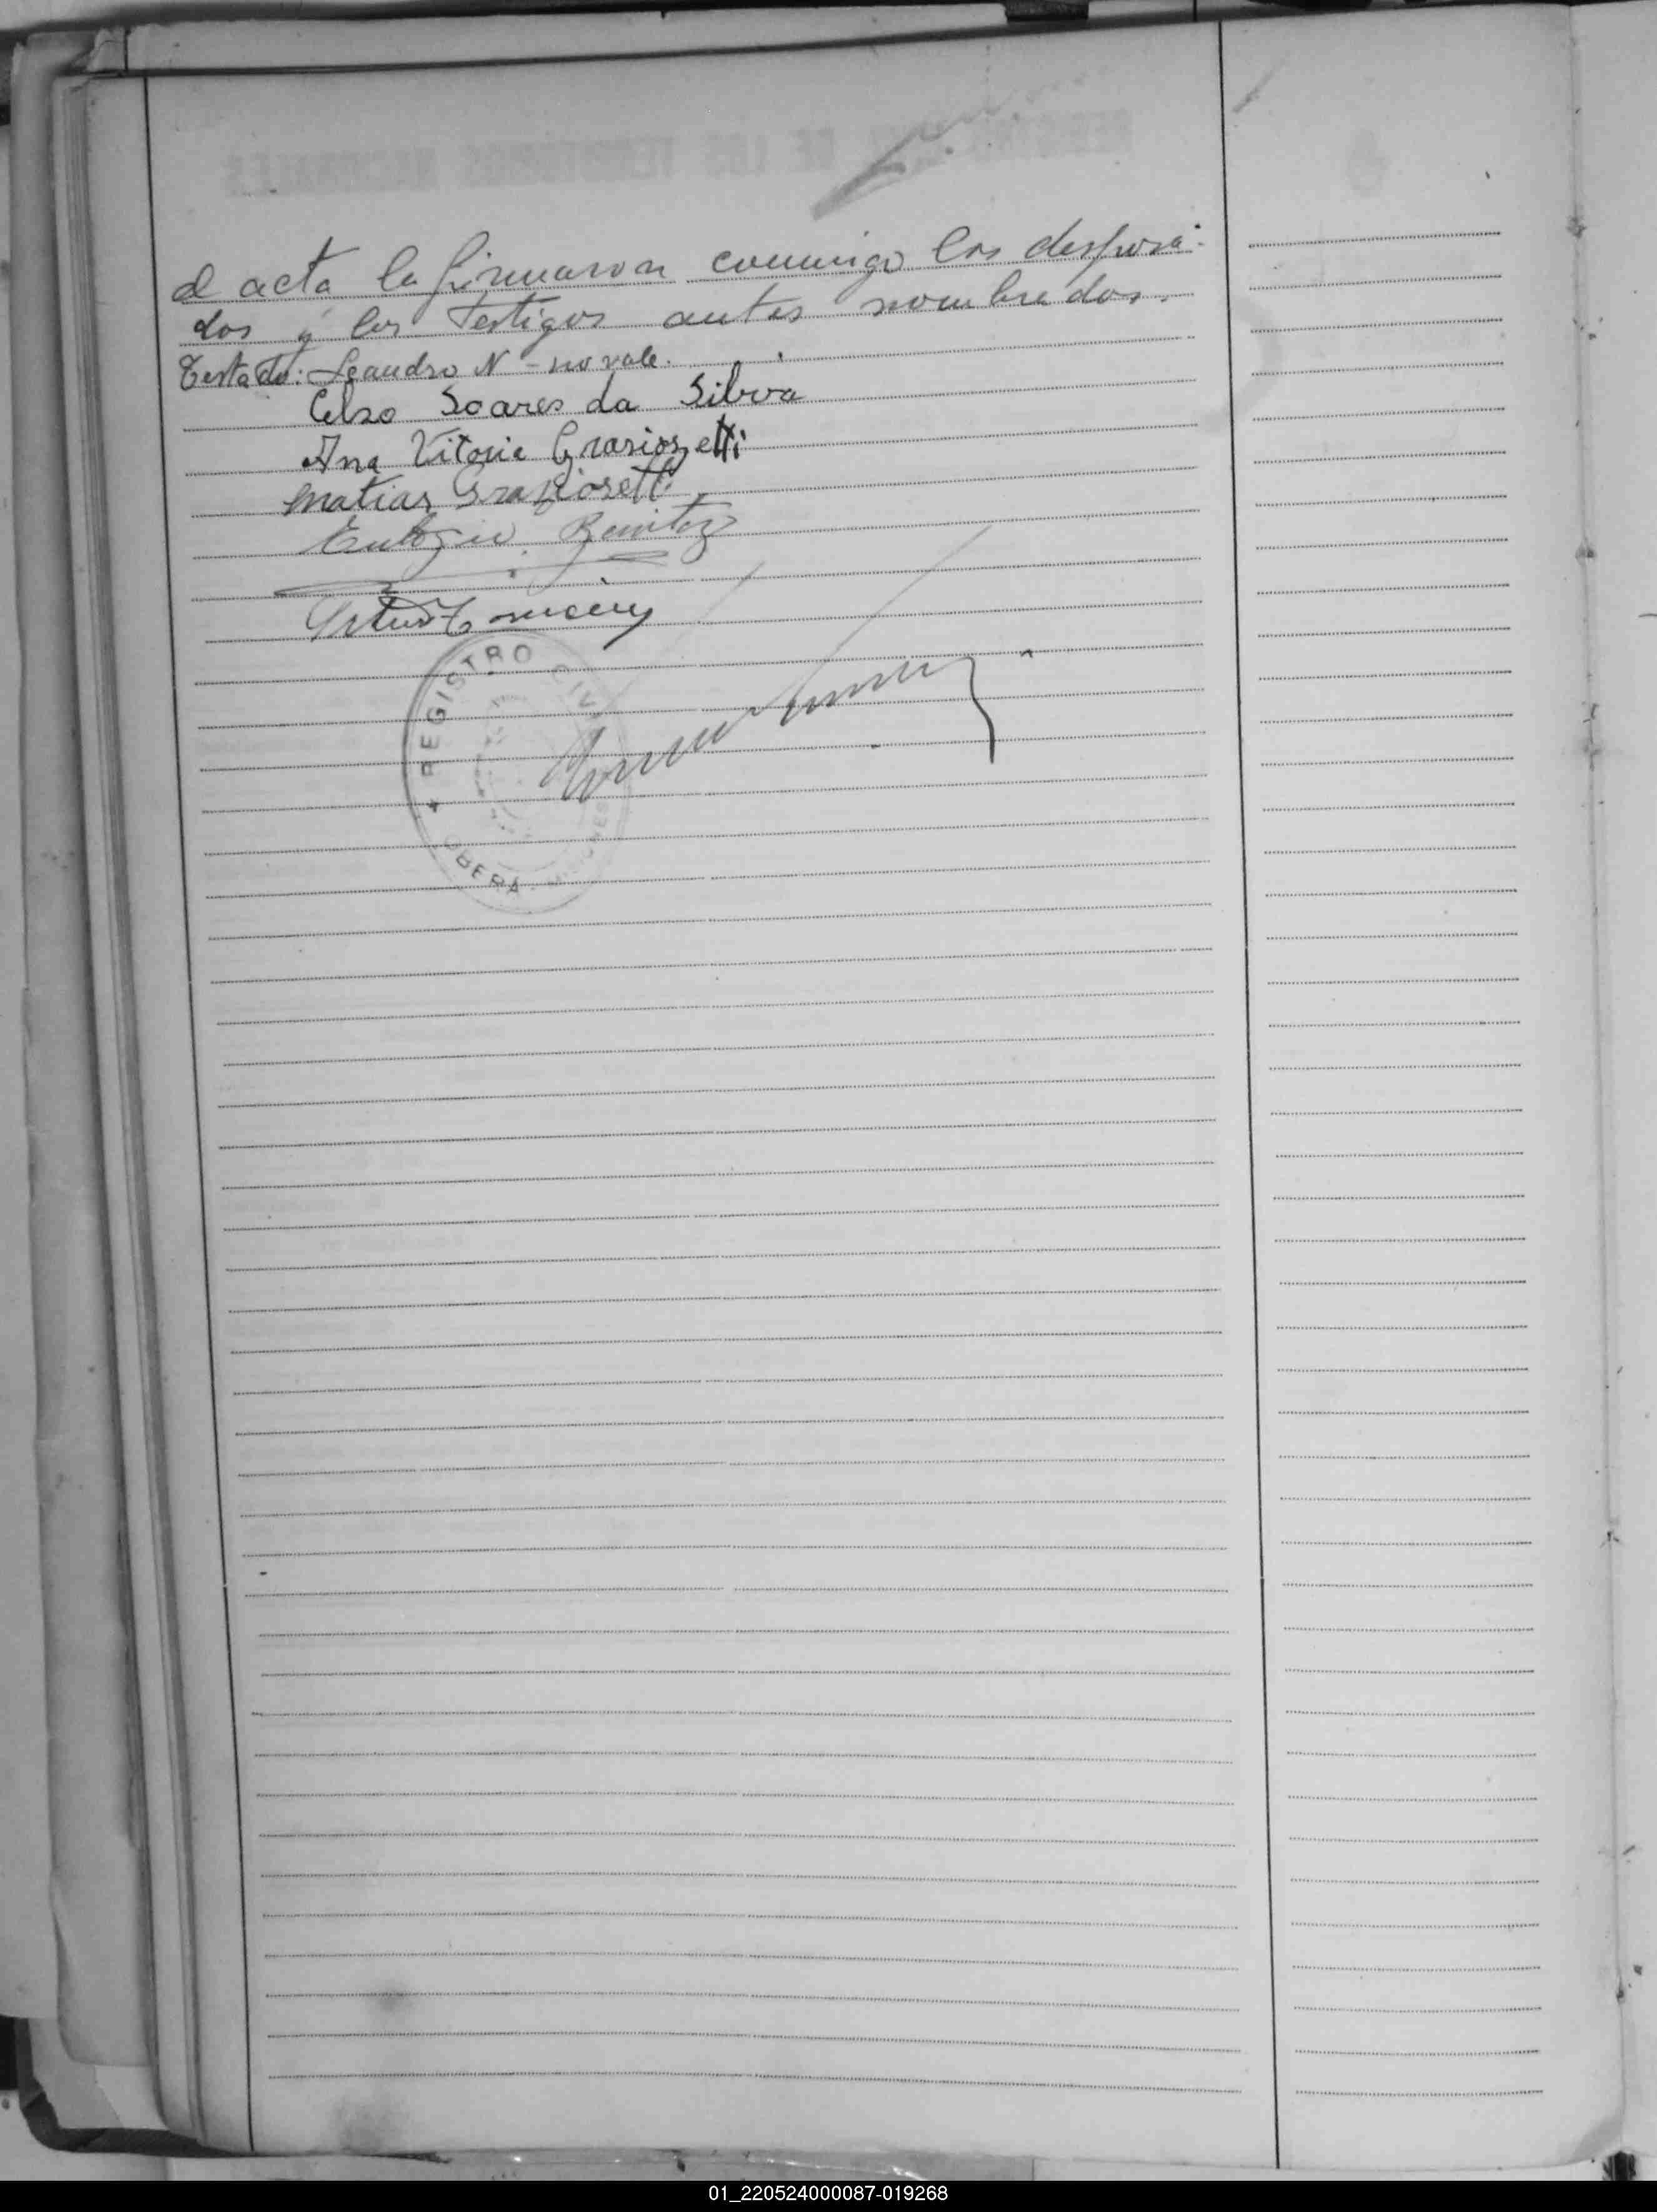 el acta la firmaron conmigo los desposa-
dos y los testigos antes nombrados.
Testado: Leandro N - no vale.
Celso Soares da Silva
Ana Vitoria Graziozetti
Matias Graziosetti
Eulogio Benitez
REGISTRO CIVIL
OBERA - MISIONES
01_220524000087-019268